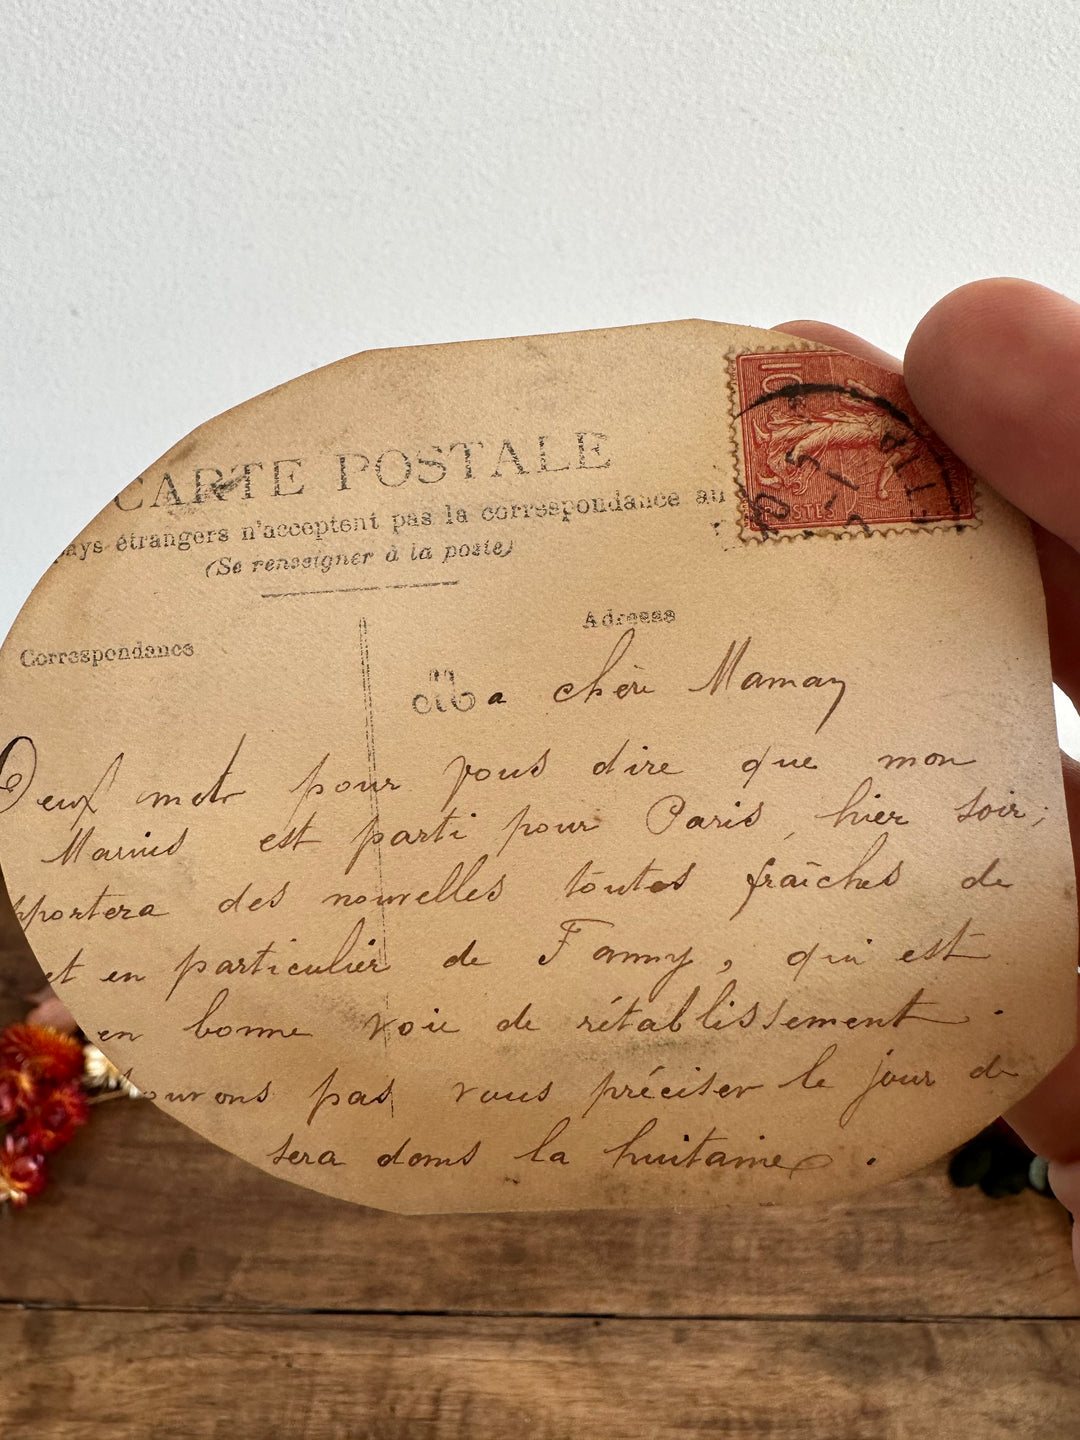 CARTE POSTALE
pays étrangers n'acceptent pas la correspondance au
(Se renseigner à la poste)
Correspondance
Adresse
Ma chère Maman
Deux mots pour vous dire que mon
Marius est parti pour Paris, hier soir;
pportera des nouvelles toutes fraîches de
et en particulier de Fanny, qui est
en bonne voie de rétablissement.
pouvons pas vous préciser le jour de
sera dans la huitaine.
10
POSTES